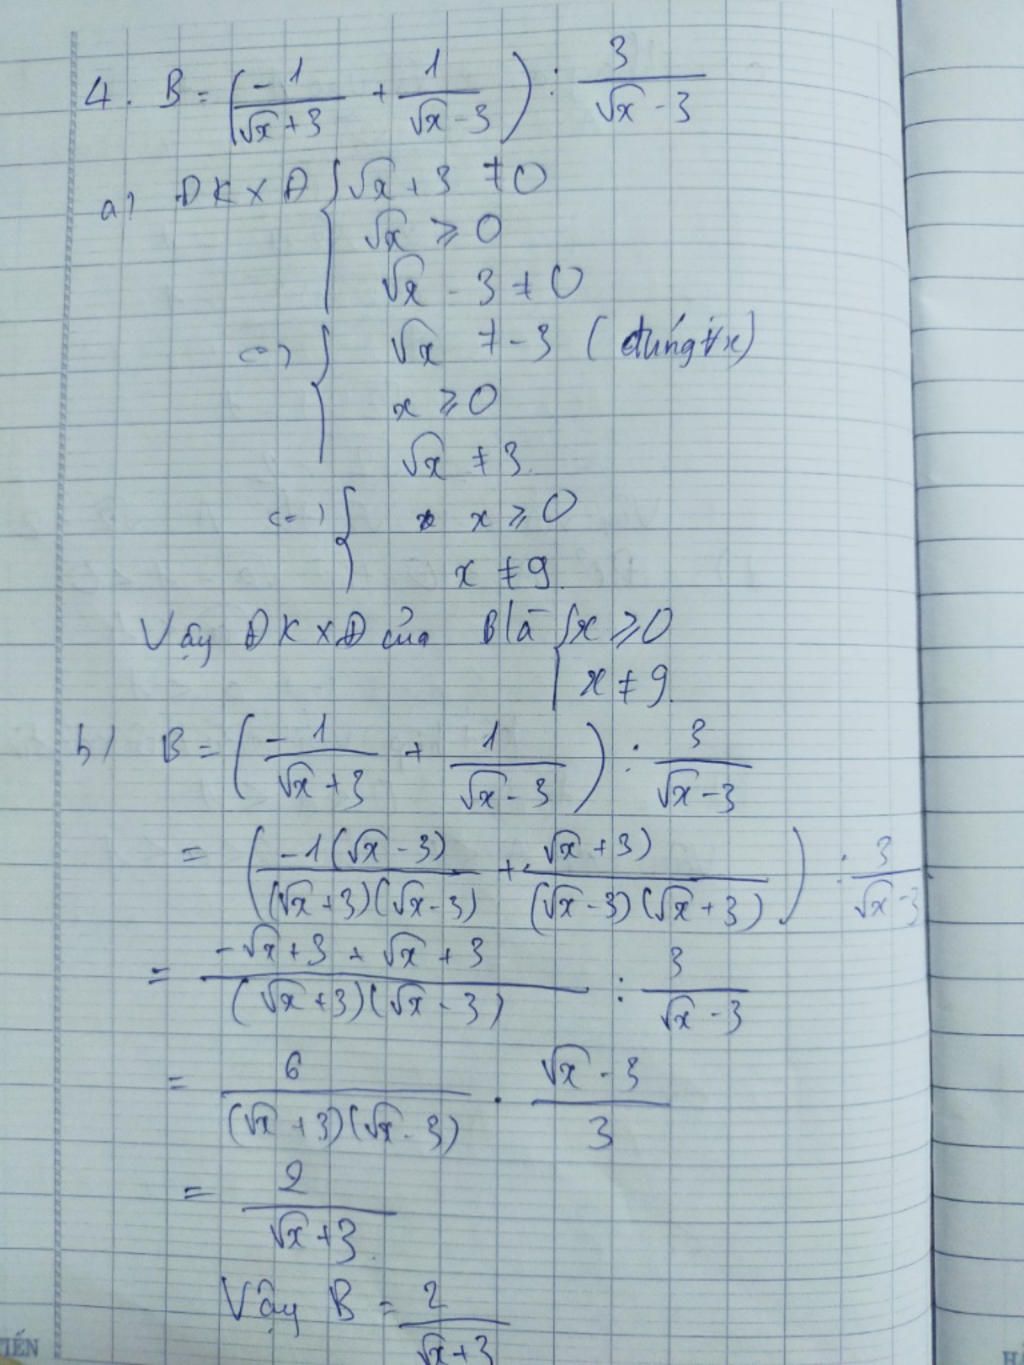 4. B = (-1/(√x + 3) + 1/(√x - 3)) : 3/(√x - 3)
a) ĐKXĐ { √x + 3 ≠ 0
√x ⩾ 0
√x - 3 ≠ 0
<=> { √x ≠ -3 (đúng ∀x)
x ⩾ 0
√x ≠ 3
<=> { x ⩾ 0
x ≠ 9.
Vậy ĐKXĐ của B là { x ⩾ 0
x ≠ 9.
b) B = (-1/(√x + 3) + 1/(√x - 3)) : 3/(√x - 3)
= (-1(√x - 3)/((√x + 3)(√x - 3)) + √x + 3)/((√x - 3)(√x + 3))) : 3/(√x - 3)
= (-√x + 3 + √x + 3)/((√x + 3)(√x - 3)) : 3/(√x - 3)
= 6/((√x + 3)(√x - 3)) . (√x - 3)/3
= 2/(√x + 3).
Vậy B = 2/(√x + 3)
TIẾN